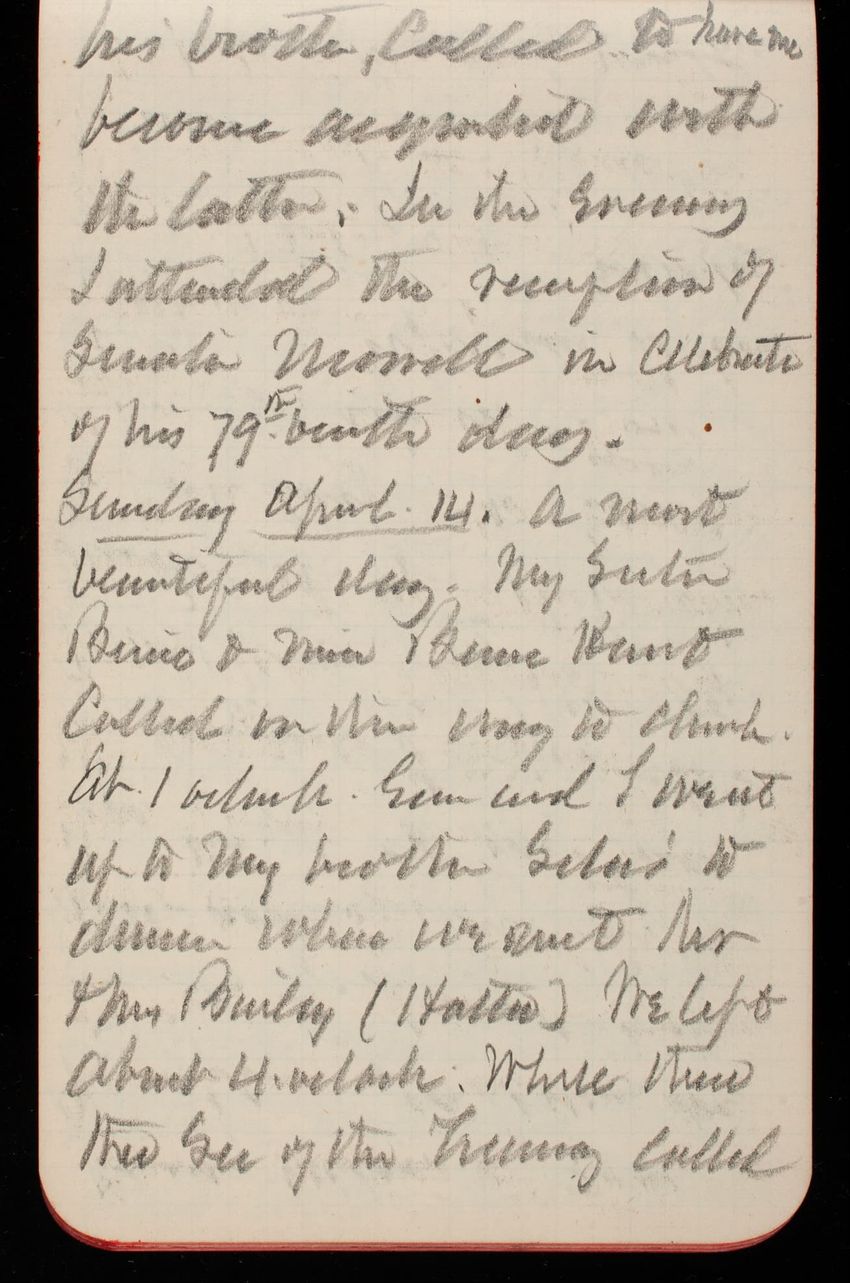 his brother, called to have me
become acquainted with
the latter. In the Evening
I attended the reception of
Senator Morrill in Celebrate
of his 79th birth day.
Sunday April 14. A most
beautiful day. My Sister
& Miss
Called on their way to church.
At 1 oclock. and I went
up to My brother Silas' to
dinner where we met Mr
& Mrs Bailey (Hattie) We left
about 4 oclock. While there
the Sec of the Treasury called